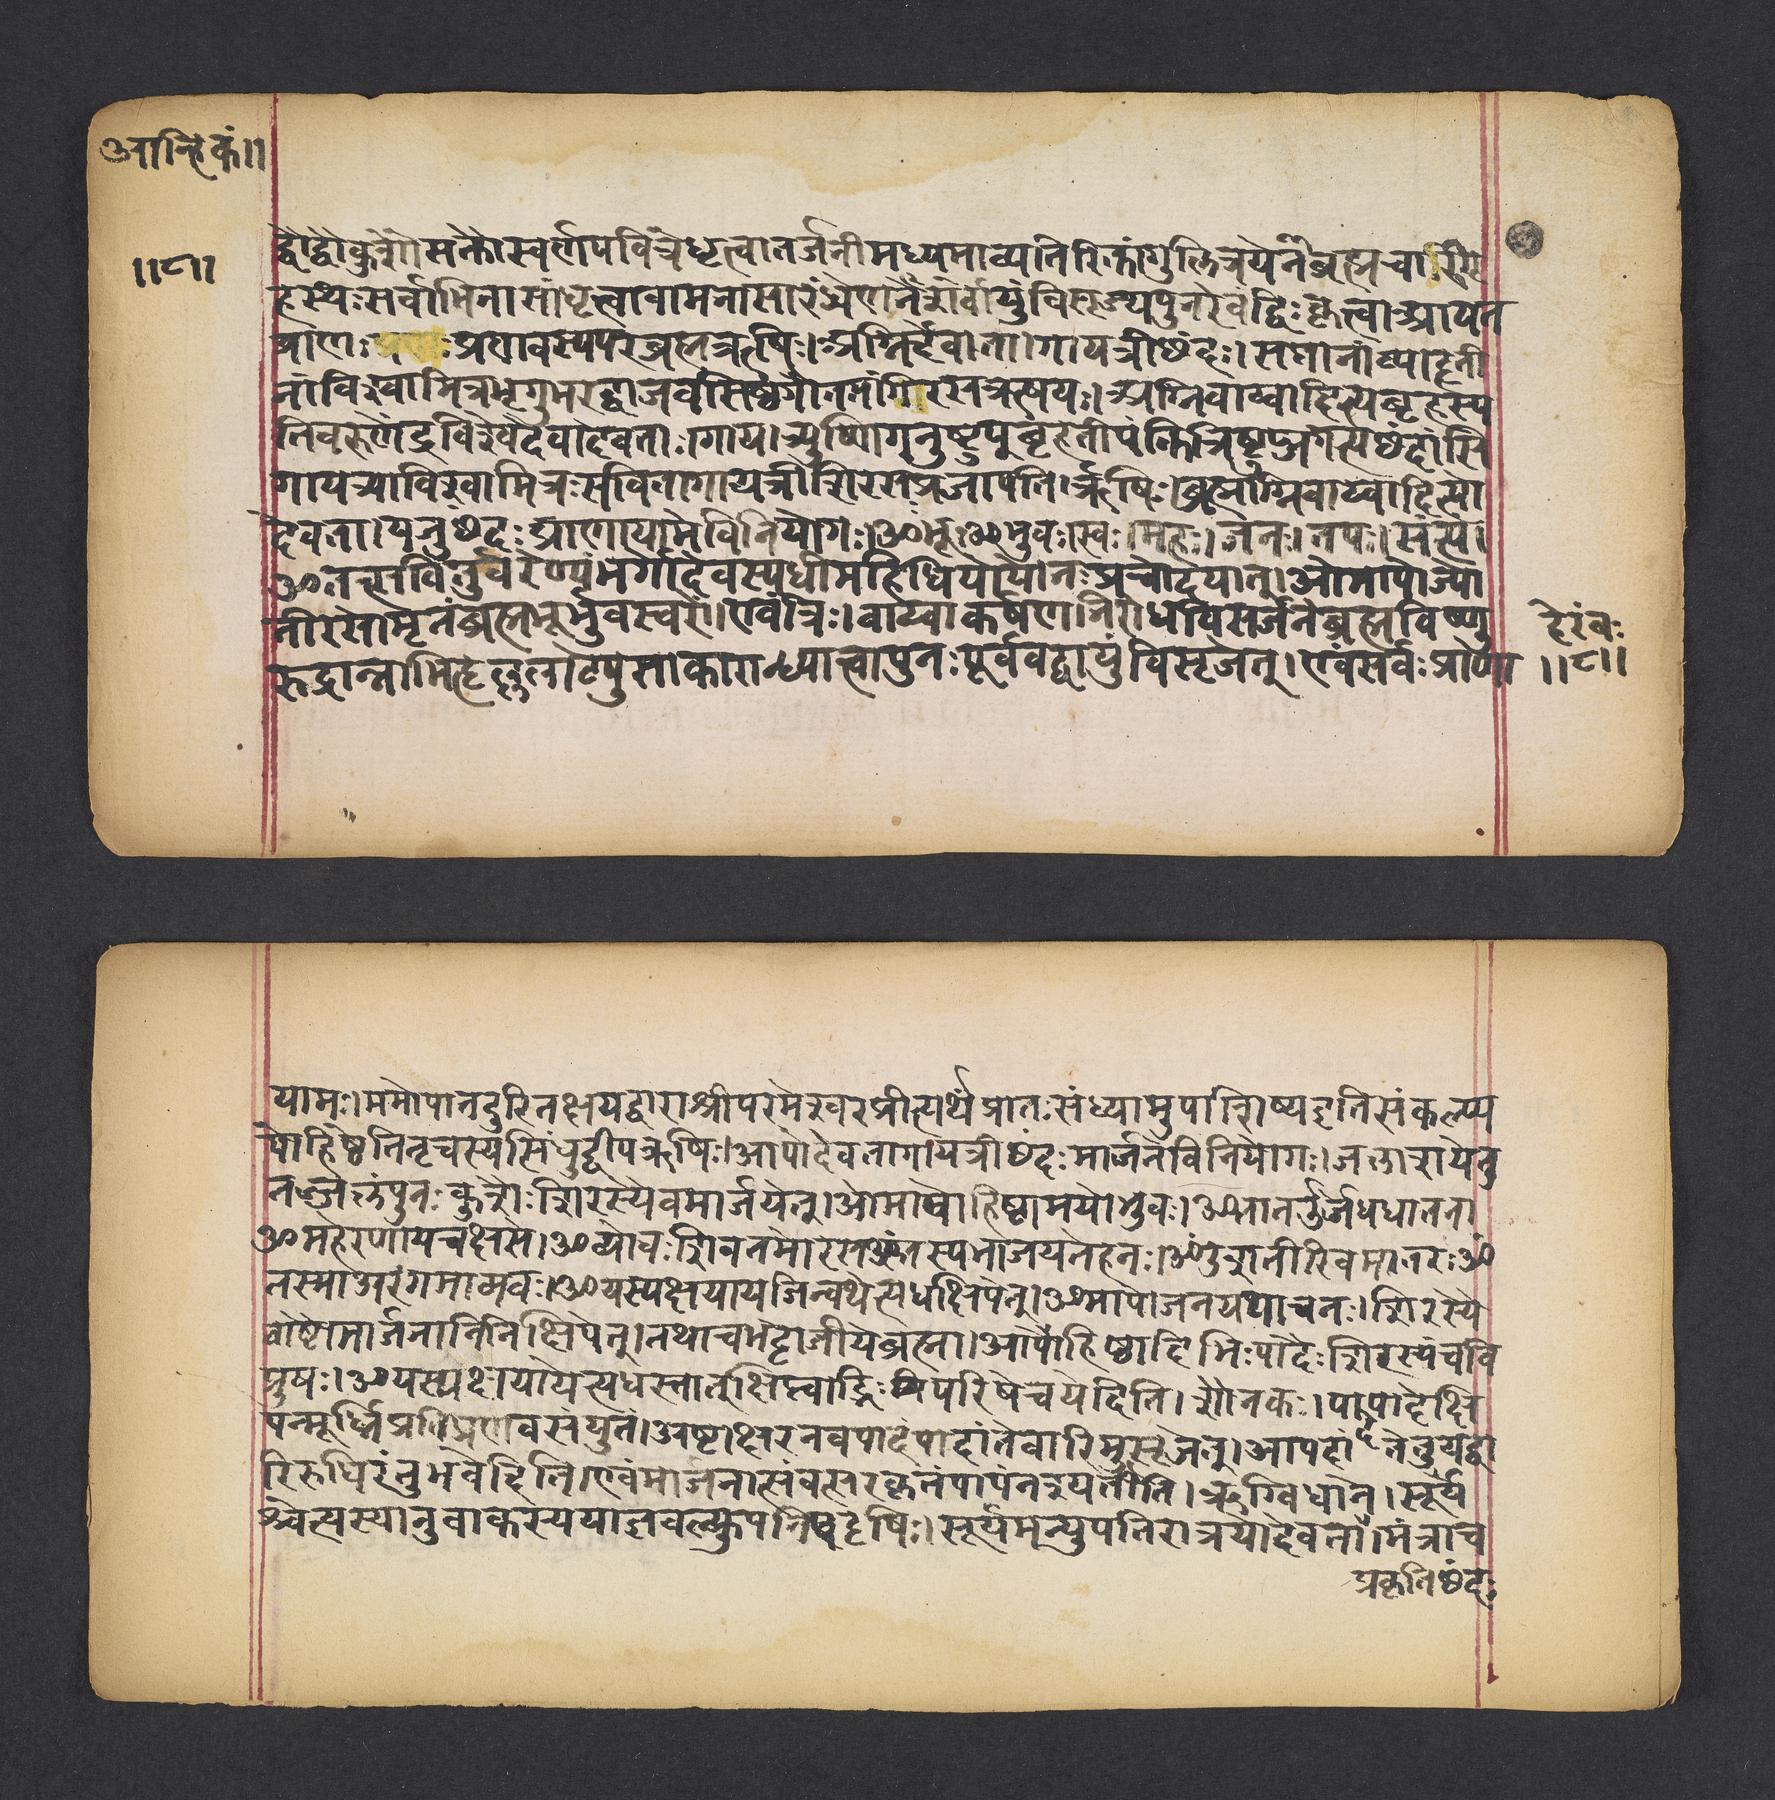 आन्हिकं॥
॥८॥
द्वौद्वौकुशौसक्तौस्वर्णपवित्रेधृत्वातर्जनीमध्यमाव्यतिरिक्तांगुलित्रयेनब्रह्मचारिगृ
हस्थःसर्वाभिर्नासांधृत्वावामनासारंध्रेणनैशर्वायुंविसृज्यपुनरेवंद्विःकृत्वाआयत
प्राणःप्रणवस्यपरब्रह्मऋषिः।अग्निर्देवता।गायत्रीछंदः।सप्तानांव्याहृती
नांविश्वामित्रभृगुभरद्वाजवसिष्ठगौतमांगिरसऋषयः।अग्निवाय्वादित्यबृहस्प
तिवरुणेंद्रविश्वेदेवादेवताः।गाय।त्र्युष्णिगनुष्टुप्बृहतीपंक्तित्रिष्टुप्जगत्यश्छंदांसि
गायत्र्याविश्वामित्रःसवितागायत्रीशिरसप्रजापतिर्ऋषिः।ब्रह्माग्निवाय्वादित्या
देवता।यजुश्छंदःप्राणायामेविनियोगः।ॐभूःॐभुवः।स्वः।महः।जनः।तपः।सत्यं।
ॐतत्सवितुर्वरेण्यंभर्गोदेवस्यधीमहिधियोयोनःप्रचोदयात्।ओमापोज्यो
तीरसोमृतंब्रह्मभूर्भुवस्वरों।एवंत्रिः।वाय्वाकर्षणनिरोधविसर्जनेब्रह्मविष्णु
रुद्रान्नाभिहृल्ललाटेषुसाकारान्ध्यात्वापुनःपूर्ववद्वायुंविसृजेत्।एवंसर्वःप्राणा
हेरंबः
॥८॥
यामः।ममोपात्तदुरितक्षयद्वाराश्रीपरमेश्वरप्रीत्यर्थंप्रातःसंध्यामुपाशिष्यइतिसंकल्प्य
पोहिष्ठेतितृचस्यसिंधुद्वीपऋषिः।आपोदेवतागायत्रीछंदःमार्जनेविनियोगः।जलाशयेतु
तज्जलंपुनःकुशैःशिरस्येवमार्जयेत्।ओमापोहिष्ठामयोभुवः।ॐतानऊर्जेदधातना
ॐमहेरणायचक्षसे।ॐयोवःशिवतमोरसःॐतस्यभाजयतेहनः।ॐउशतीरिवमातरःॐ
तस्माअरंगमामवः।ॐयस्यक्षयायजिन्वथेत्यधक्षिपेत्।ॐआपोजनयथाचनः।शिरस्ये
वोष्टौमार्जनानिनिक्षिपेत्।तथाचभट्टोजीयेब्रह्मा।आपोहिष्ठादिभिःपादैःशिरस्यंचवि
प्रुषः।ॐयस्यक्षयायेत्यधस्तात्तुक्षिप्त्वाद्भिःपरिषेचयेदिति।शौनकः।पादेपादेक्षि
पेन्मूर्ध्निप्रतिप्रणवसंयुतं।अष्टाक्षरनवपादंपादांतेवारिमुत्सृजेत्।आपदांतेतुयद्वा
रिरुधिरंतुभवेदिति।एवंमार्जनात्संवत्सरकृतंपापंनश्यतीति।ऋग्विधाने।सूर्य
श्चेत्यस्यानुवाकस्ययाज्ञवल्क्युपनिषदृषिः।सूर्यमन्युपतिरात्रयोदेवता।मंत्राच
प्रकृतिछंदः